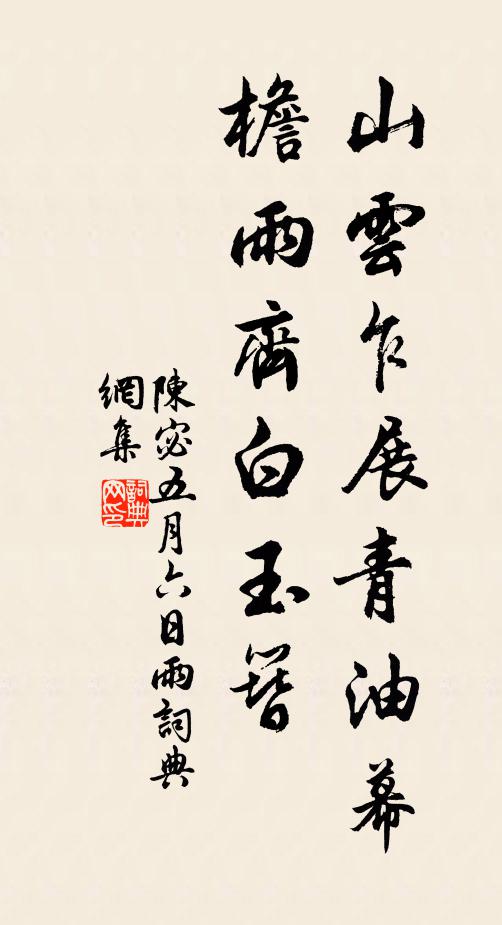 山雲乍展青油幕
檐雨齊白玉簪
陳宓五月六日雨詞典
網集
詞典網印